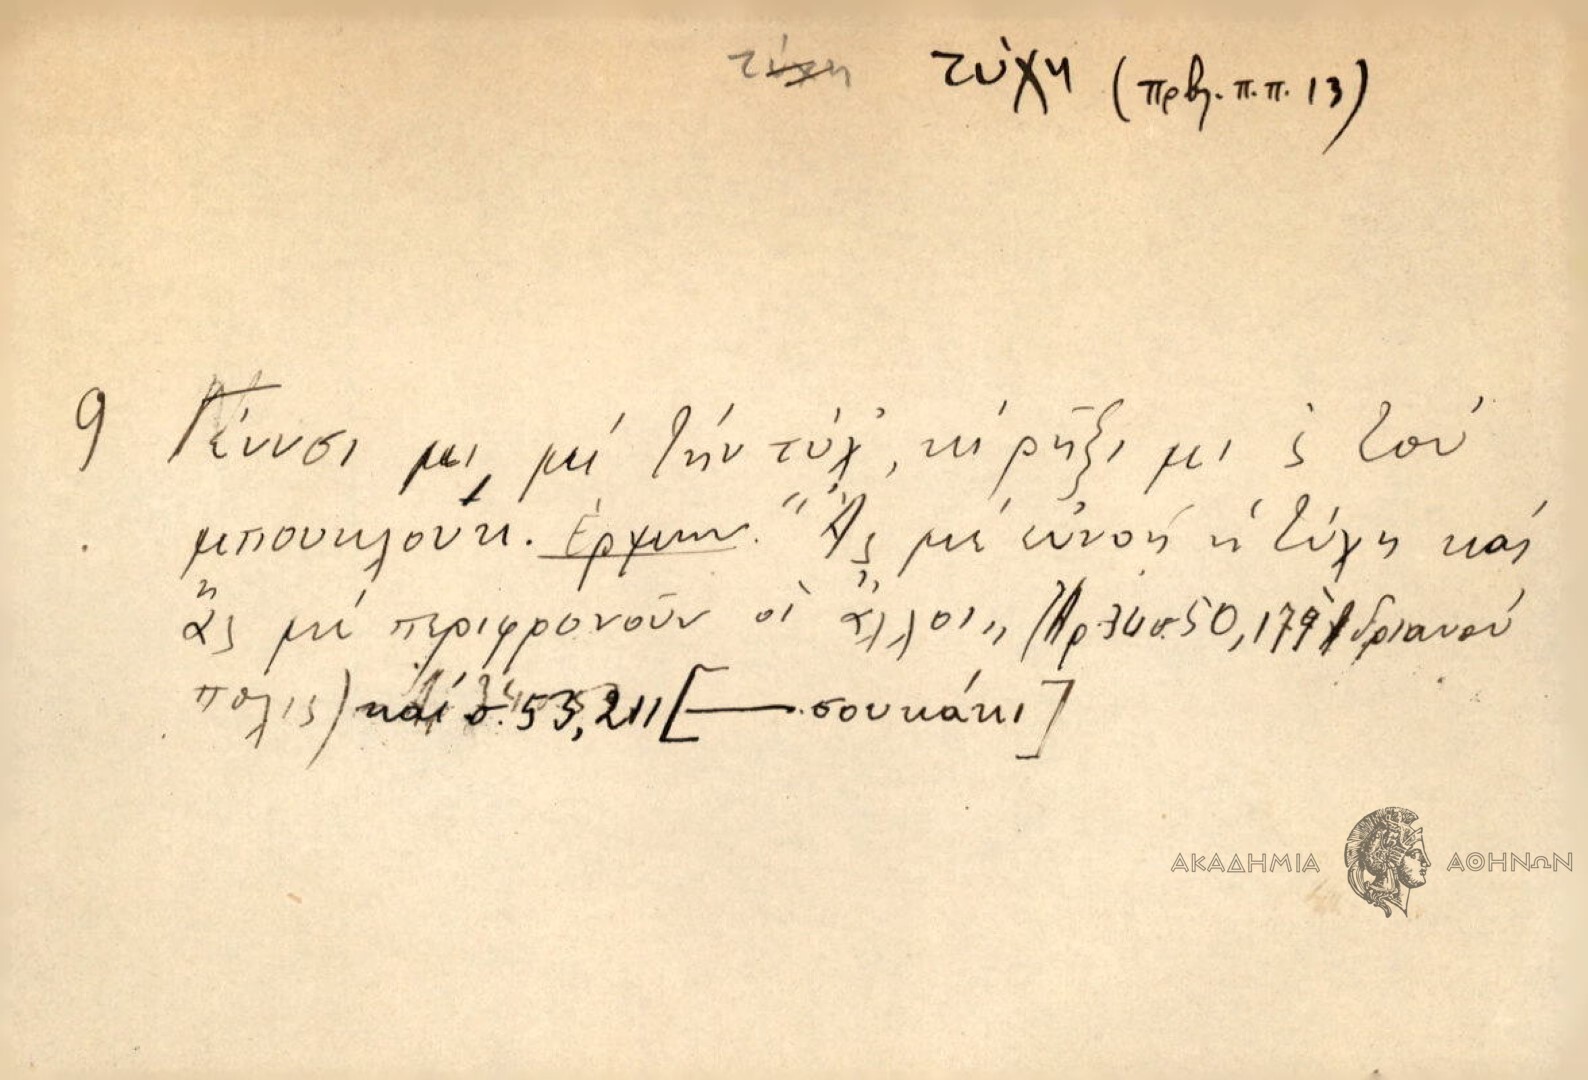 τύχη τύχη (πρβλ. π.π. 13)
9 Γέννσι μι, μέ τήν τύχ', κί ρῆξι μι ς τού
μπουκλούκ. Ἑρμην. "Ἄς μέ εὐνοῇ ἡ τύχη καί
ἄς μέ περιφρονοῦν οἱ ἄλλοι" (Ἀρ 34 σ. 50, 179 Ἀδριανού
πολις) καί σ. 53, 211 [— σουκάκι]
ΑΚΑΔΗΜΙΑ ΑΘΗΝΩΝ